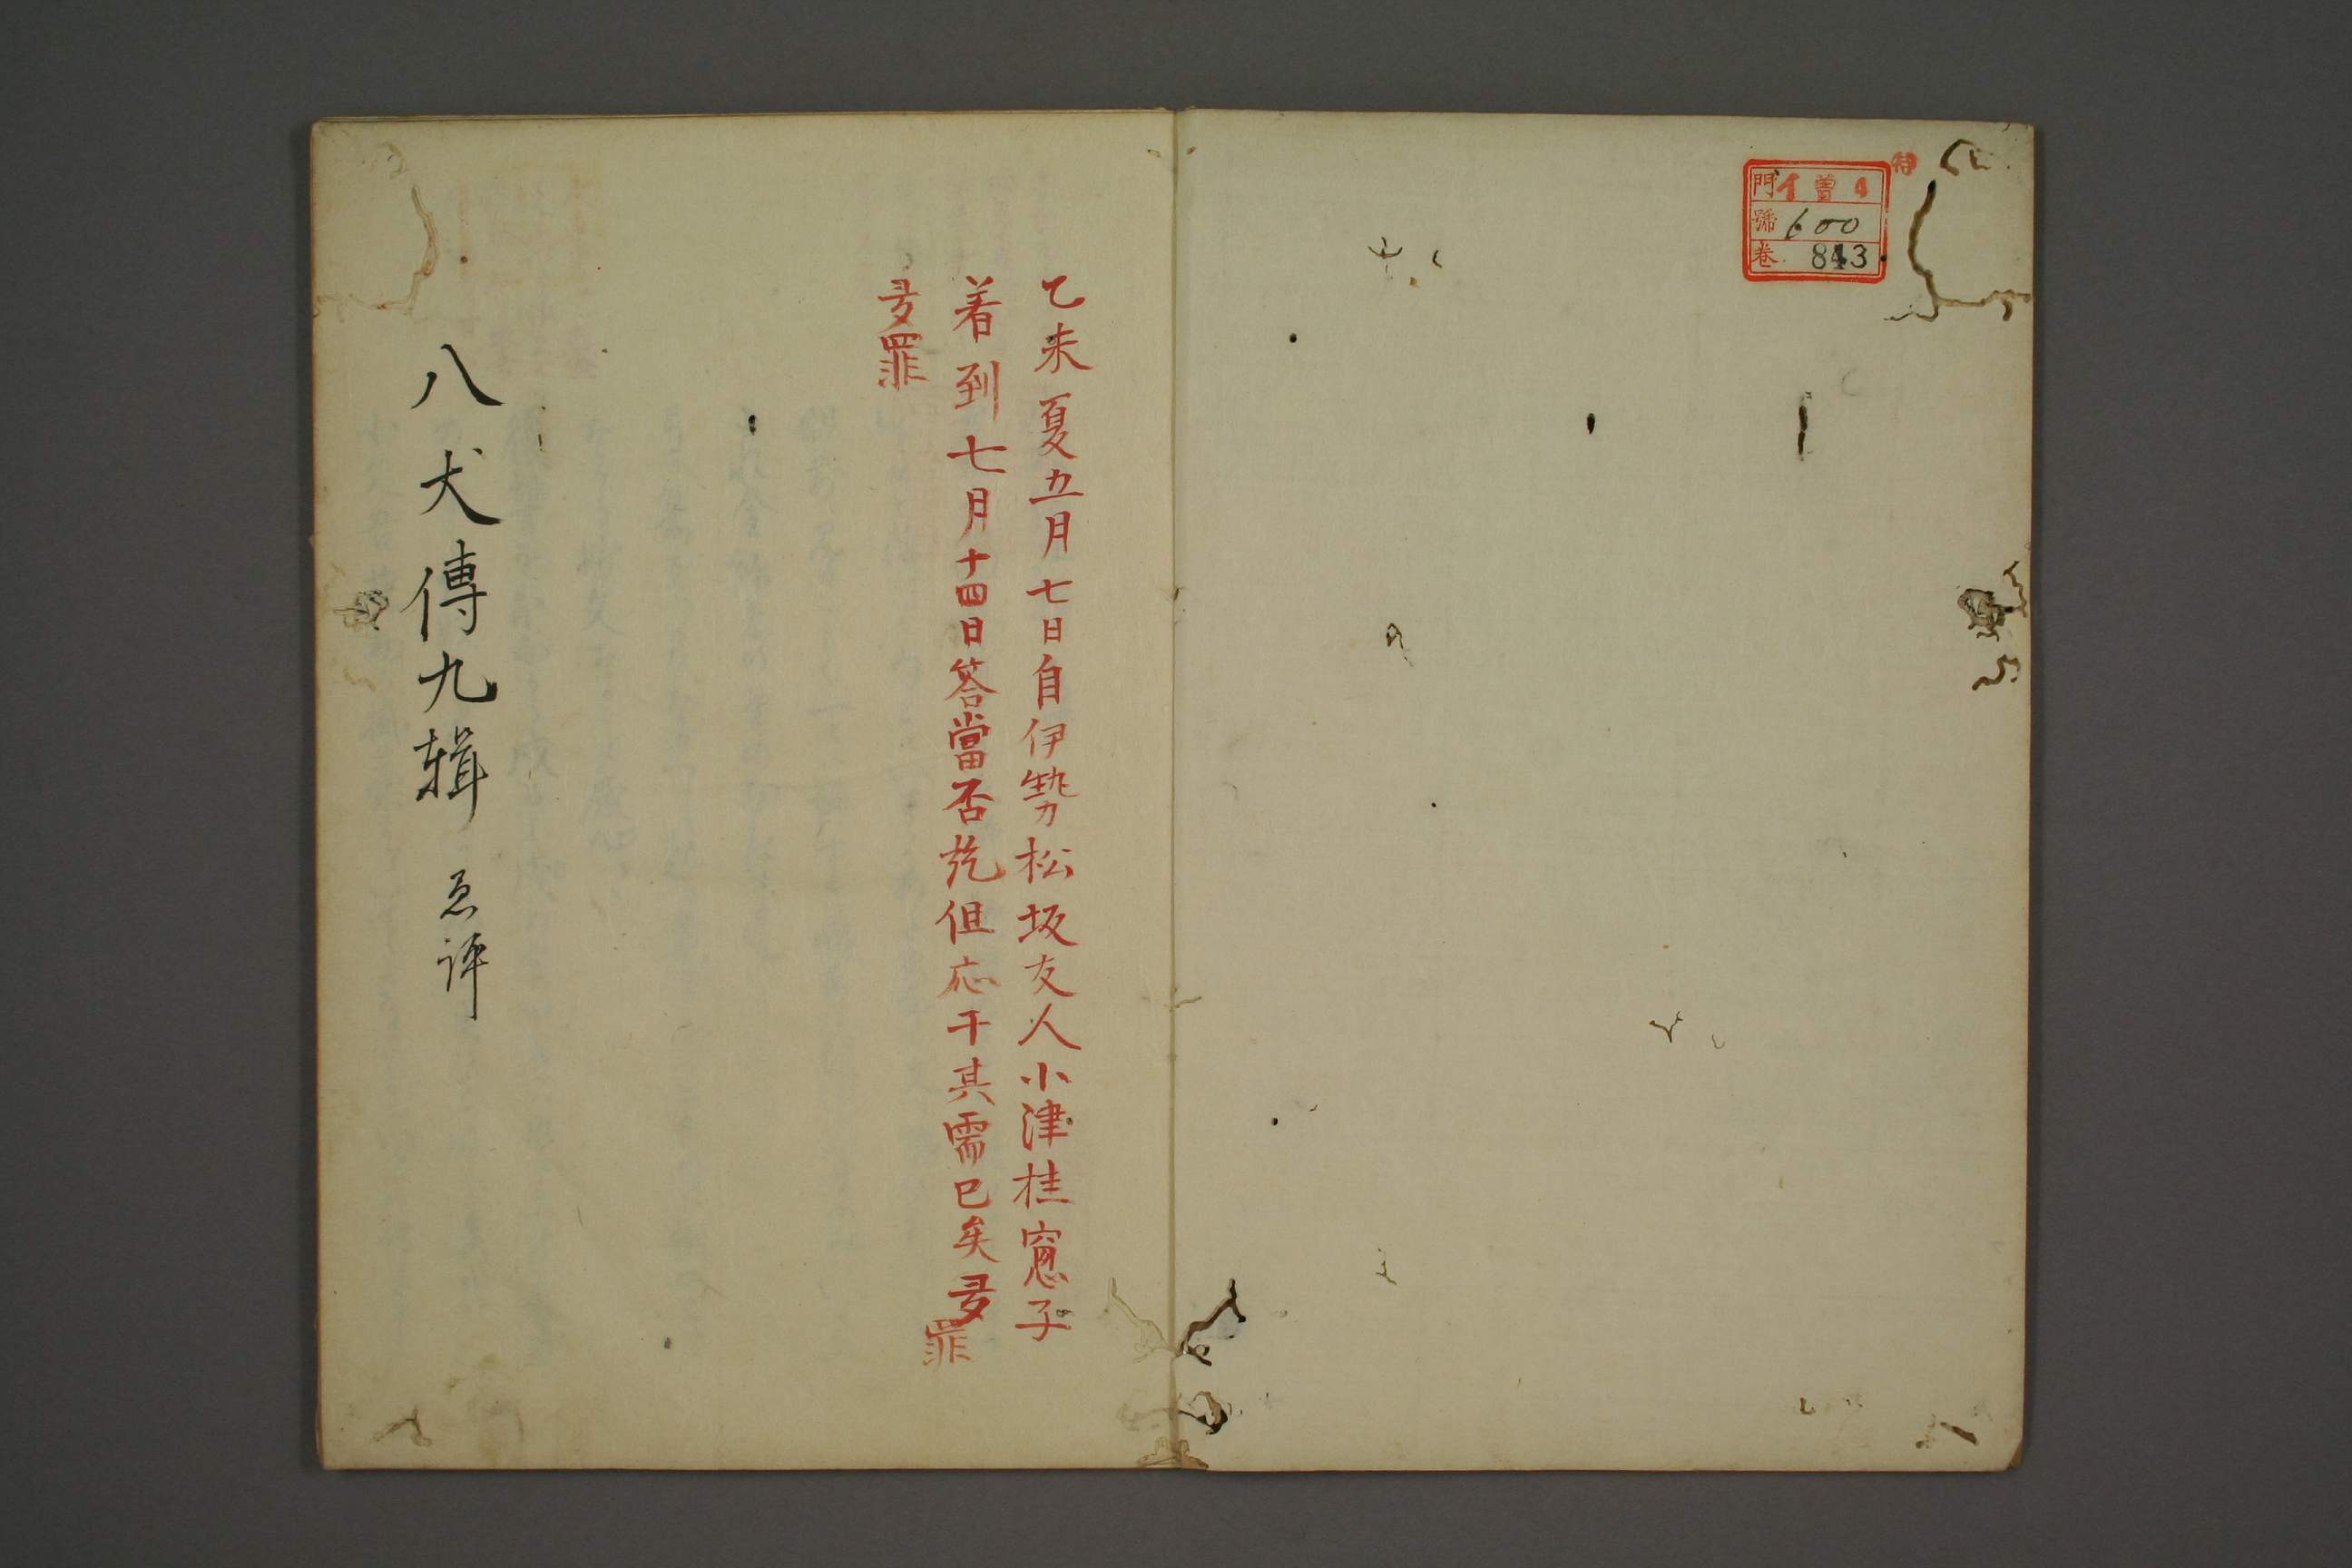 特
門 イ 曽 4
號 600
卷 843
乙未夏五月七日自伊勢松坂友人小津桂窻子
着到七月十四日答當否訖但応干其需已矣多罪
多罪
八犬傳九輯 愚評